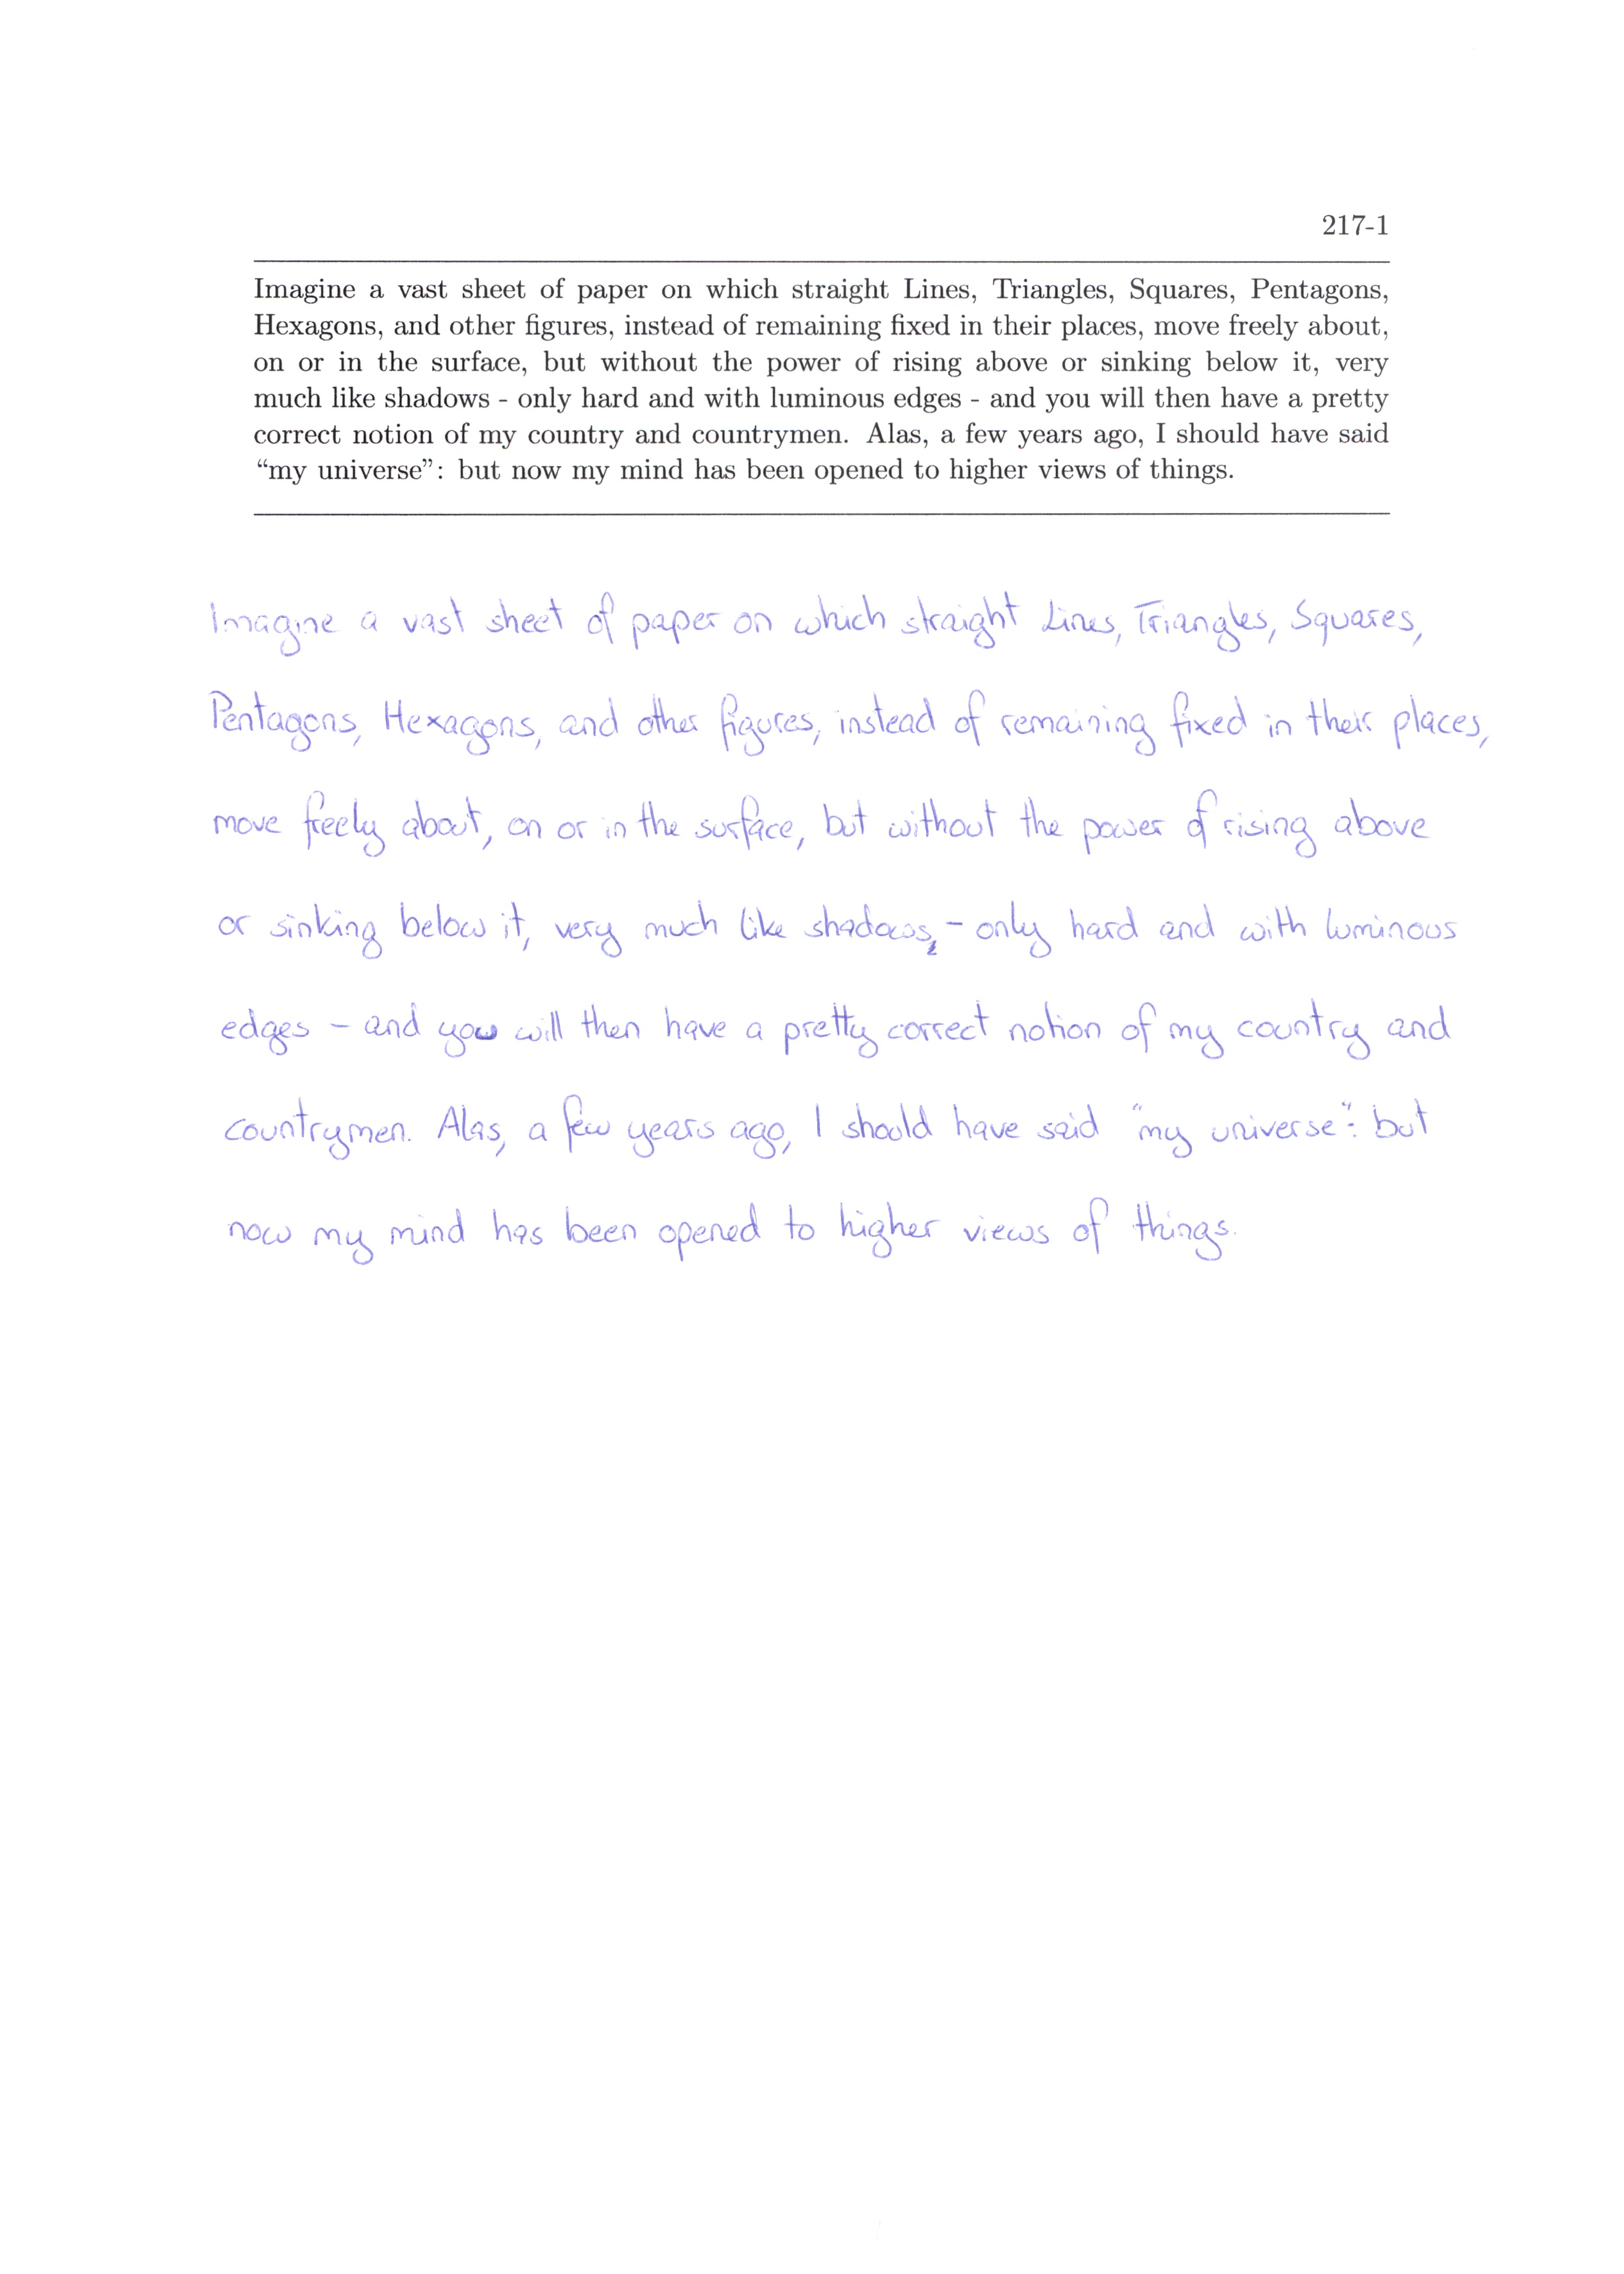 217-1
Imagine a vast sheet of paper on which straight Lines, Triangles, Squares, Pentagons,
Hexagons, and other figures, instead of remaining fixed in their places, move freely about,
on or in the surface, but without the power of rising above or sinking below it, very
much like shadows - only hard and with luminous edges - and you will then have a pretty
correct notion of my country and countrymen. Alas, a few years ago, I should have said
“my universe”: but now my mind has been opened to higher views of things.
Imagine a vast sheet of paper on which straight Lines, Triangles, Squares,
Pentagons, Hexagons, and other figures, instead of remaining fixed in their places,
move freely about, on or in the surface, but without the power of rising above
or sinking below it, very much like shadows, - only hard and with luminous
edges - and you will then have a pretty correct notion of my country and
countrymen. Alas, a few years ago, I should have said "my universe": but
now my mind has been opened to higher views of things.